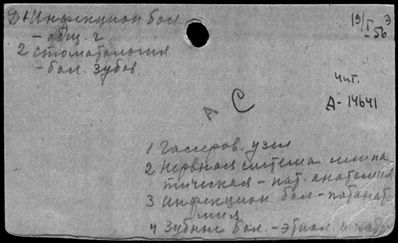 Д1 Инфекцион бол
- общ. г
2 стоматология
- бол. зубов
19/I 56
3
чит.
А-14641
А С
1 Гассеров. узел
2 Нервная система симпа
тическая - пат. анатомия
3 Инфекцион бол - патанато
мия
4 Зубные бол. - этиол. и